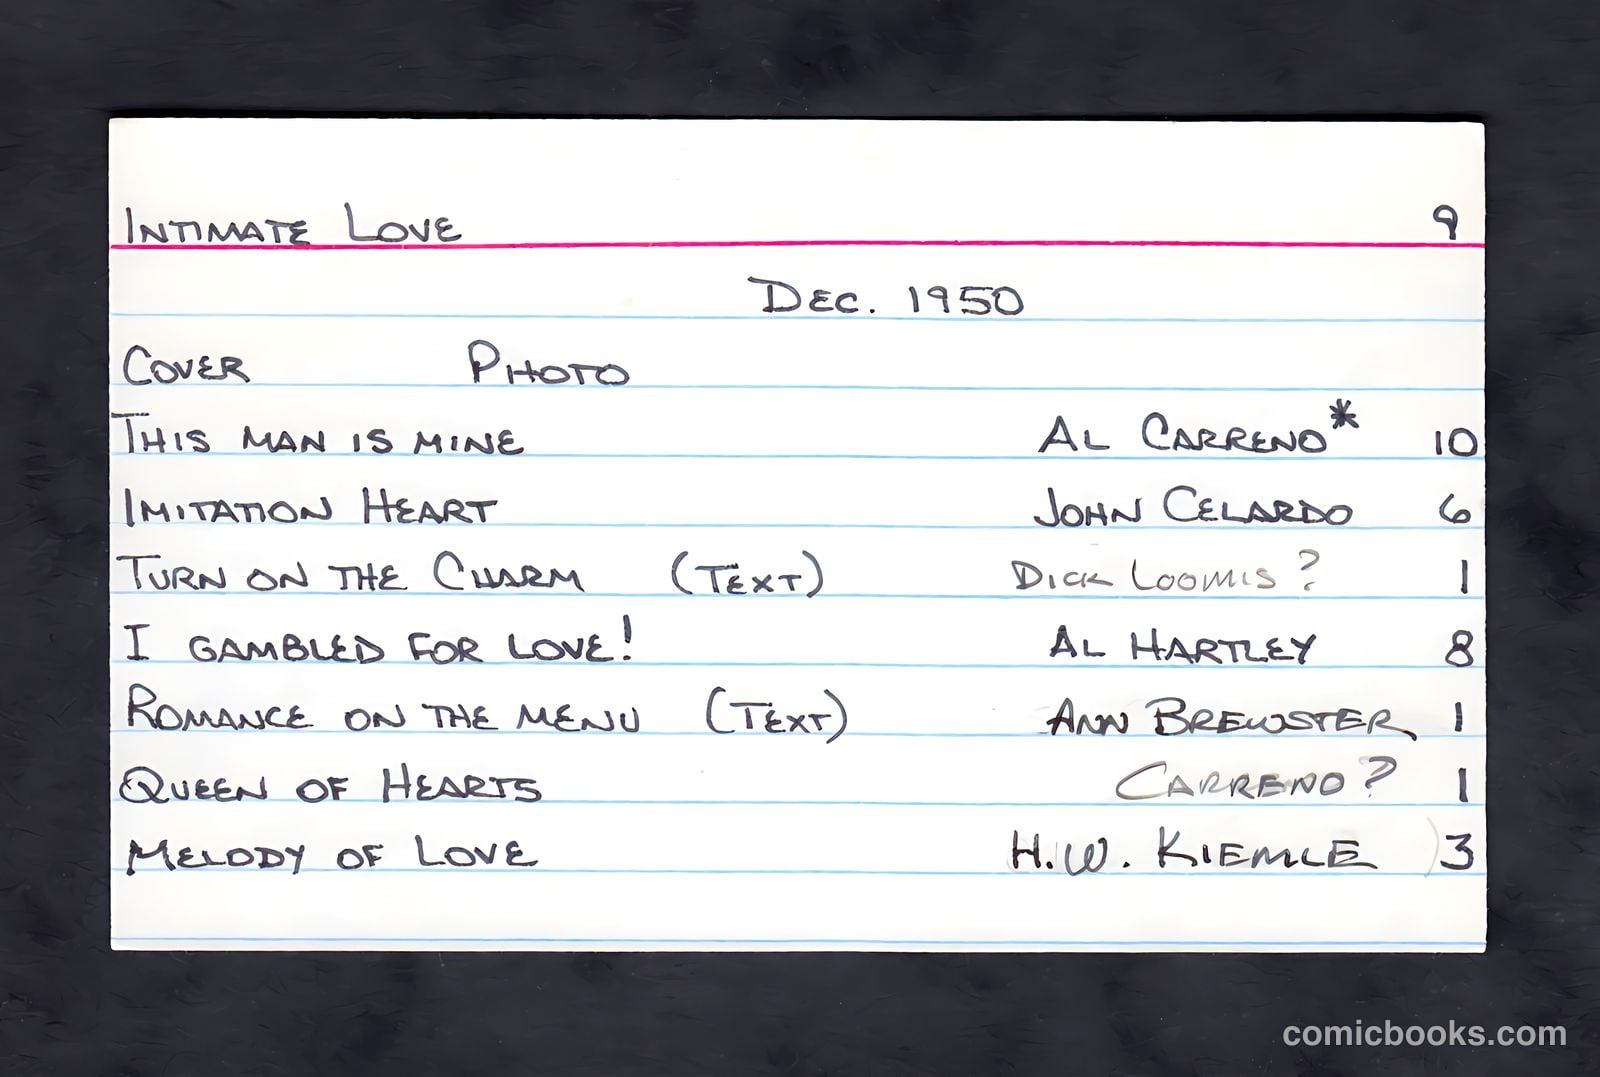 INTIMATE LOVE 9
DEC. 1950
COVER PHOTO
THIS MAN IS MINE AL CARRENO* 10
IMITATION HEART JOHN CELARDO 6
TURN ON THE CHARM (TEXT) DICK LOOMIS? 1
I GAMBLED FOR LOVE! AL HARTLEY 8
ROMANCE ON THE MENU (TEXT) ANN BREWSTER 1
QUEEN OF HEARTS CARRENO? 1
MELODY OF LOVE H.W. KIEMLE 3
comicbooks.com